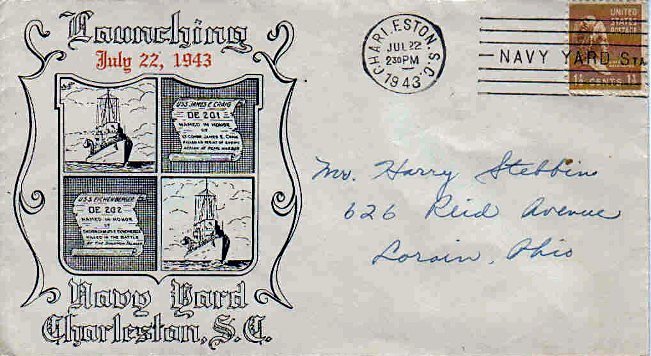 Launching
July 22, 1943
USS JAMES E CRAIG
DE 201
NAMED IN HONOR
OF
LT COMDR JAMES E. CRAIG
KILLED AS RESULT OF ENEMY
ACTION AT PEARL HARBOR
U.S.S. EICHENBERGER
DE 202
NAMED IN HONOR
OF
KILLED IN THE BATTLE
OF THE SOLOMON ISLANDS
Navy Yard
Charleston, S.C.
CHARLESTON, S.C.
JUL 22
230PM
1943
NAVY YARD STA
UNITED
STATES
POSTAGE
1½ CENTS 1½
Mr. Harry Stebbins
626 Reid Avenue
Lorain, Ohio